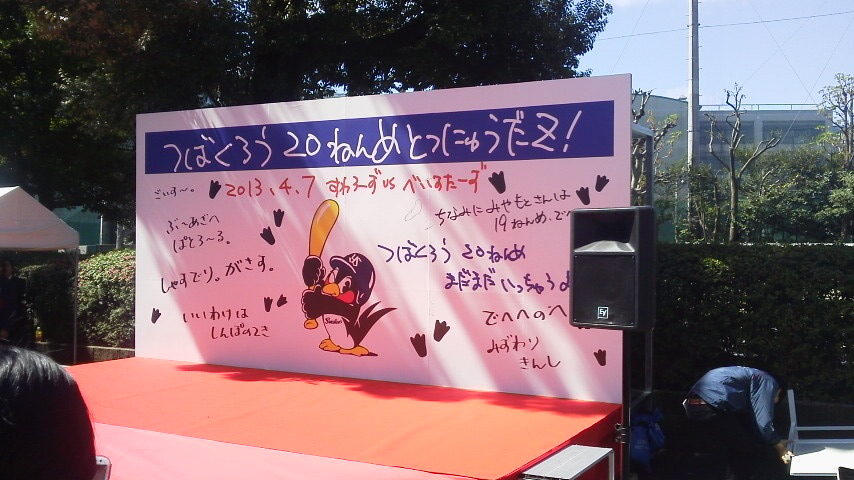 つばくろう 20ねんめ とつにゅうだZ!
2013.4.7 すわろーず vs べいすたーず
ごぃすー。
ぶーあざへ
ぱとろーる。
しゃすでり。がさす。
いいわけは
しんぽのてき
ちなみにみやもとさんは
19ねんめ。で
つばくろう 20ねんめ
まだまだいっちゃうよ
でへへのへ
みずわり
きんし
Swallows
EV